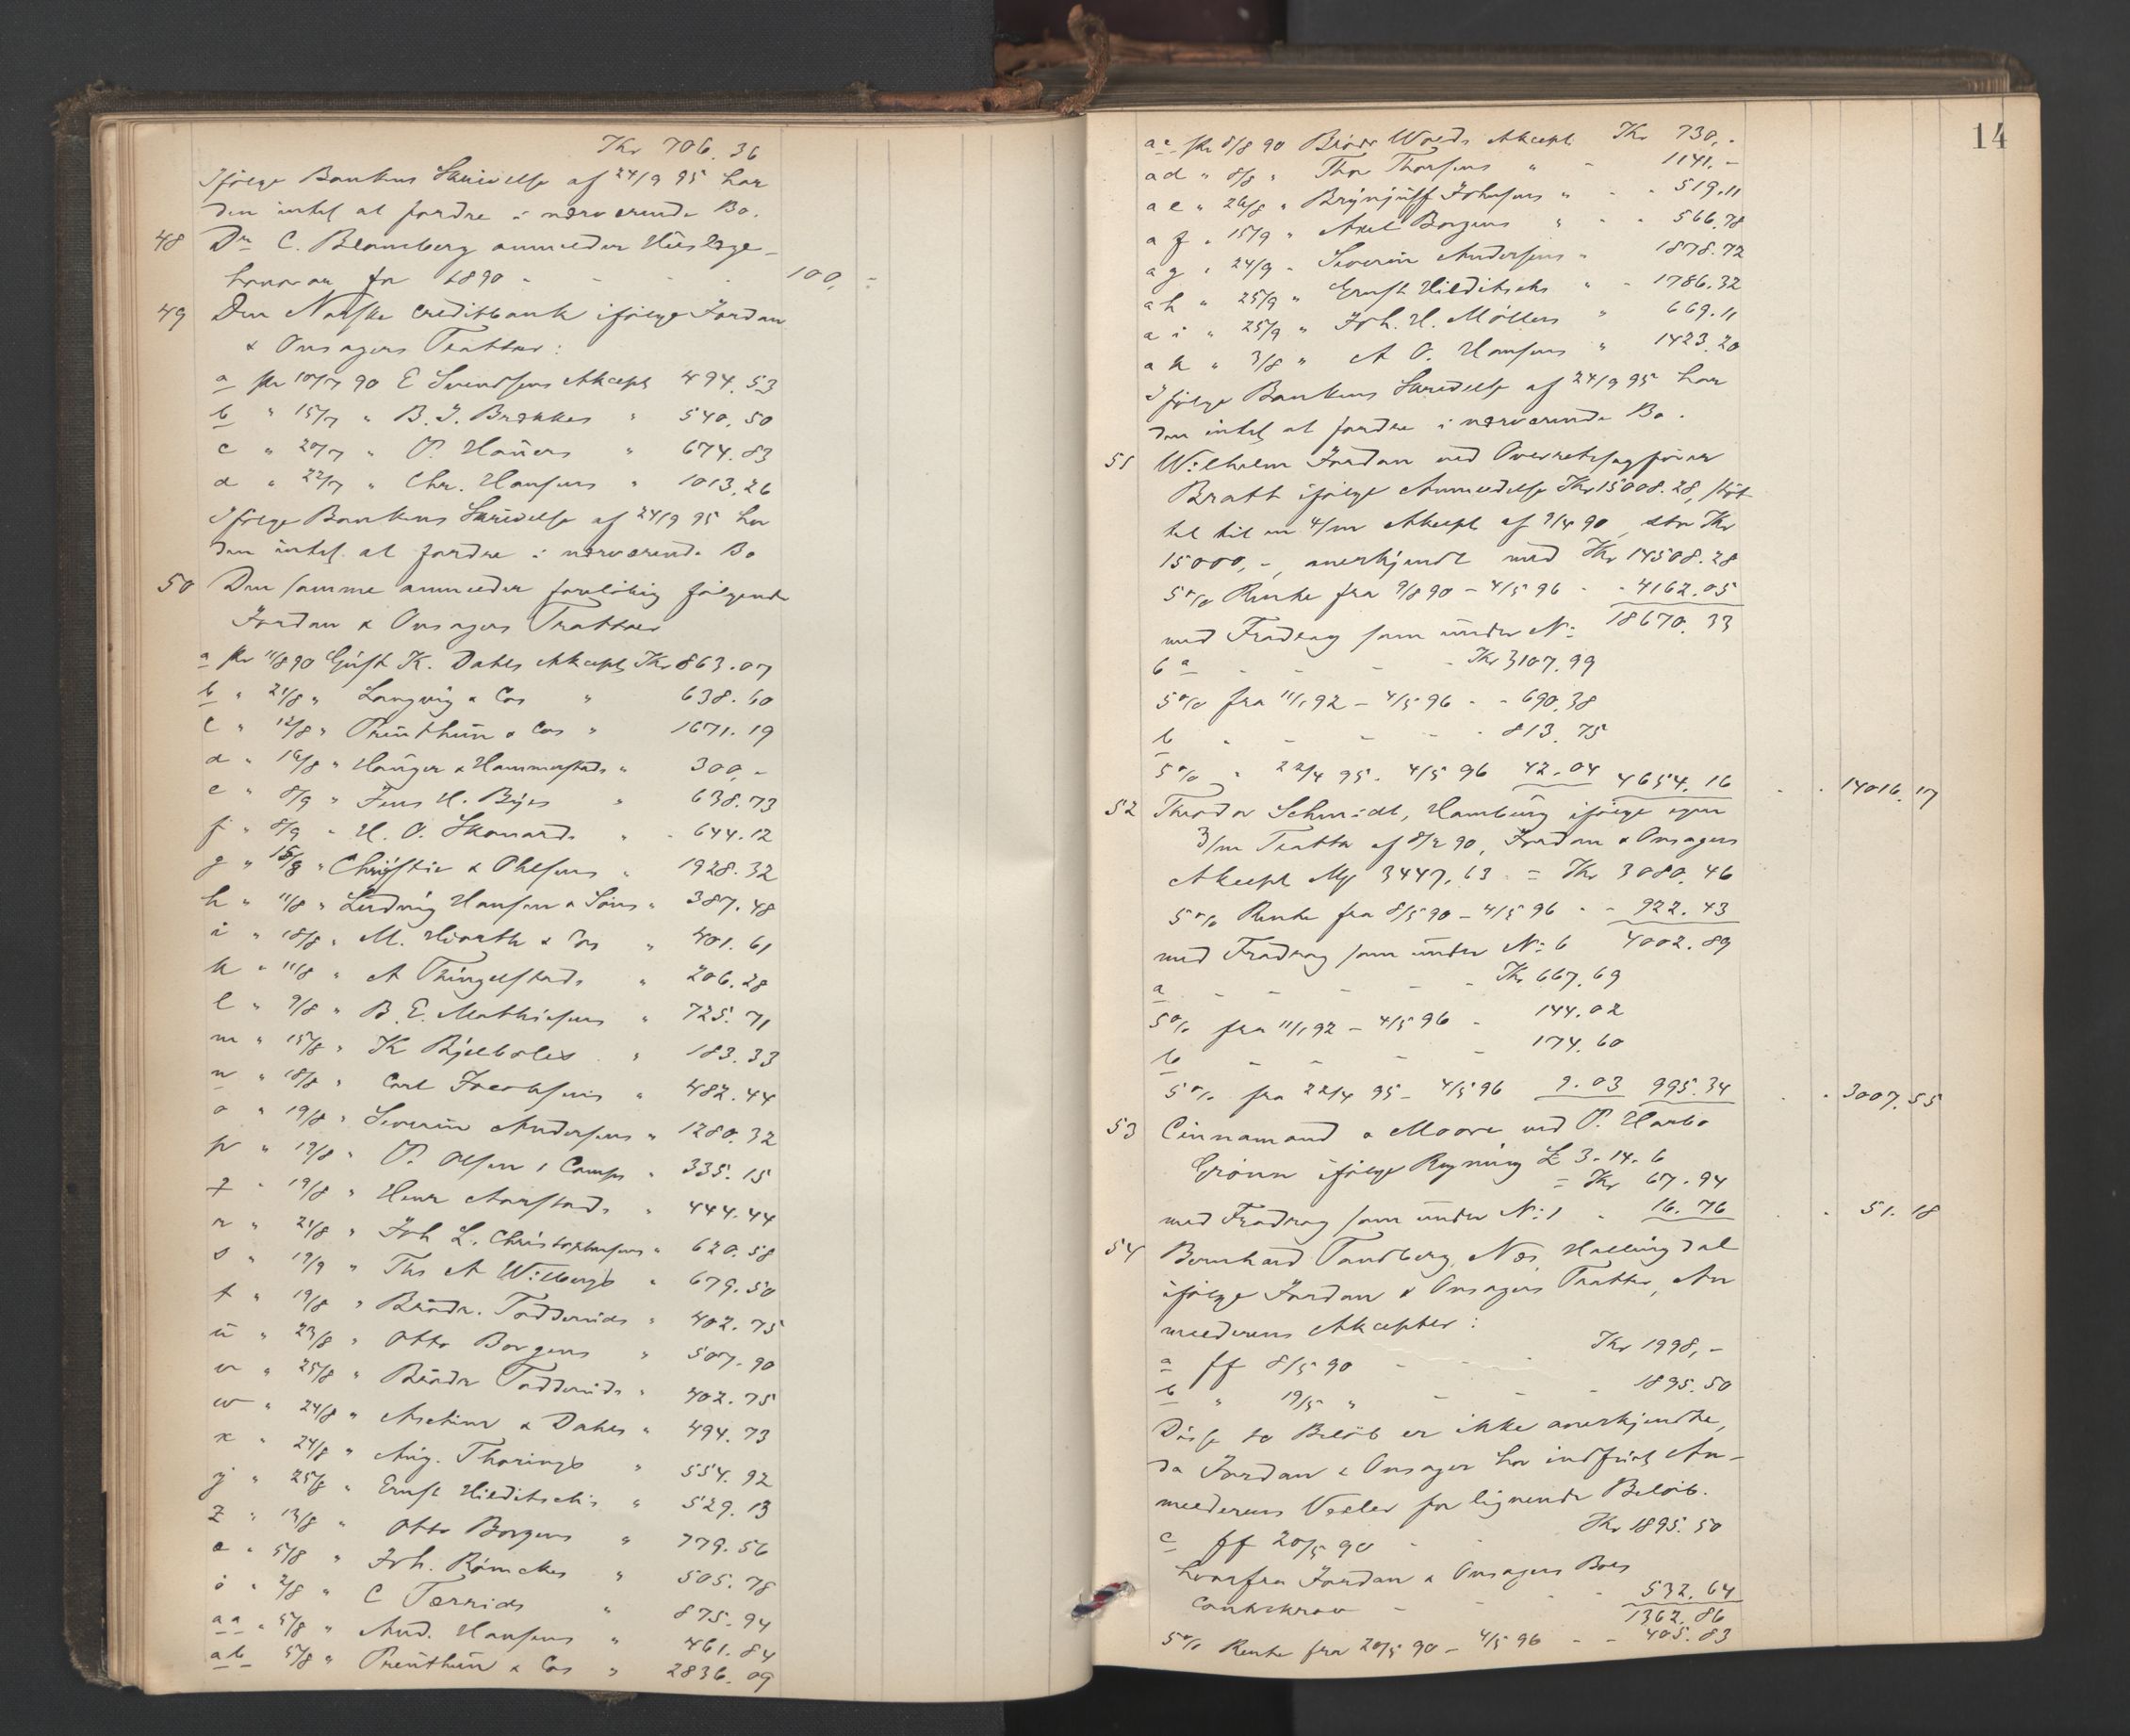 Kr 706.36
Ifølge Bankens Skrivelse af 24/9 95 har
den intet at fordre i nærværende Bo.
48 Dr C. Blomberg anmelder Huslæge-
honorar for 1890 - - - 100,-
49 Den Norske Creditbank ifølge Jordan
& Onsagers Tratter:
a pr 10/7 90 E Svendsens Akcept 494.53
b " 15/7 " B. J. Brækkes " 540.50
c " 20/7 " P. Hauers " 674.83
d " 22/7 " Chr. Hansens " 1013.26
Ifølge Bankens Skrivelse af 24/9 95 har
den intet at fordre i nærværende Bo
50 Den samme anmelder foreløbig følgende
Jordan & Onsagers Tratter
a pr 11/8 90 Gust K. Dahls Akcept Kr 863.07
b " 21/8 " Langvig & Cos " 638.60
c " 12/8 " Prenthun & Cos " 1671.19
d " 16/8 " Hauger & Hammerstads " 300,-
e " 8/9 " Jens H. Byes " 638.73
f " 8/9 " H. O. Skonards " 644.12
g " 15/8 " Christie & Ohlsens " 1928.32
h " 11/8 " Ludvig Hansen & Søns " 387.48
i " 18/8 " M. Hiorth & Cos " 401.61
k " 11/8 " A Thingelstads " 206.28
l " 9/8 " B. E. Mathisens " 725.71
m " 15/8 " K Bjelboles " 183.33
n " 18/8 " Carl Jacobsens " 482.44
o " 19/8 " Severin Andersens " 1280.32
p " 19/8 " P. Olsen & Comps " 335.15
q " 19/8 " Henr Aarstads " 444.44
r " 21/8 " Joh L. Christophersens " 620.58
s " 19/9 " Ths A Wilbergs " 679.50
t " 19/8 " Brødr. Todderuds " 402.75
u " 23/8 " Otto Borgens " 507.90
v " 25/8 " Brødr Todderuds " 402.75
w " 24/8 " Aschim & Dahls " 494.73
x " 24/8 " Aug. Thorings " 554.92
y " 25/8 " Ernst Hilditschs " 529.13
z " 13/8 " Otto Borgens " 779.56
æ " 5/8 " Joh. Römckes " 505.78
ø " 2/8 " C Tærrids " 875.94
aa " 5/8 " And. Hansens " 461.84
ab " 5/8 " Prenthun & Cos " 2836.09
14
ac pr 8/8 90 Brødr Wolds Akcept Kr 730,-
ad " 8/8 " Thor Thorsens " - 1141,-
ae " 26/8 " Brynjulf Johnsens " - - 519.11
af " 15/9 " Axel Borgens " - - 566.78
ag " 24/9 " Severin Andersens " 1878.72
ah " 25/9 " Ernst Hilditschs " - 1786.32
ai " 25/9 " Joh. H. Møllers " 669.11
ak " 3/8 " A O. Hansens " 1423.20
Ifølge Bankens Skrivelse af 24/9 95 har
den intet at fordre i nærværende Bo.
51 Wilhelm Jordan ved Overretssagfører
Bratt ifølge Anmeldelse Kr 15008.28, støt
tet til en 4/m Akcept af 9/4 90, stor Kr
15000,-, anerkjendt med Kr 14508.28
5% Rente fra 9/8 90 - 4/5 96 - - 4162.05
18670.33
med Fradrag som under No
6 a - - - - Kr 3107.99
5% fra 11/1 92 - 4/5 96 - - 690.38
b - - - - - 813.75
5% " 22/4 95 - 4/5 96 42.04 4654.16 - - 14016.17
52 Theodor Schmidt, Hamburg ifølge egen
3/m Tratta af 8/2 90, Jordan & Onsagers
Akcept Mf 3447.63 = Kr 3080.46
5% Rente fra 8/5 90 - 4/5 96 - - 922.43
med Fradrag som under No 6 4002.89
a - - - - - Kr 667.69
5% fra 11/1 92 - 4/5 96 - 144.02
b - - - - 174.60
5% fra 22/4 95 - 4/5 96 9.03 995.34 - - 3007.55
53 Cinnamand & Moore ved P. Harbo
Grønn ifølge Regning £ 3-14-6
= Kr 67.94
med Fradrag som under No 1 - 16.76 - 51.18
54 Bernhard Tandberg, Næs, Hallingdal
ifølge Jordan & Onsagers Tratter, An
melderens Akcepter:
a ff 8/5 90 - - - Kr 1998,-
b " 19/5 " - - - 1895.50
Disse to Beløb er ikke anerkjendte,
da Jordan & Onsager har indfriet An-
melderens Vexler for lignende Beløb.
c ff 20/5 90 - - Kr 1895.50
hvorfra Jordan & Onsagers Boes
Contrakrav - - - - 532.64
1362.86
5% Rente fra 20/5 90 - 4/5 96 - - 405.83